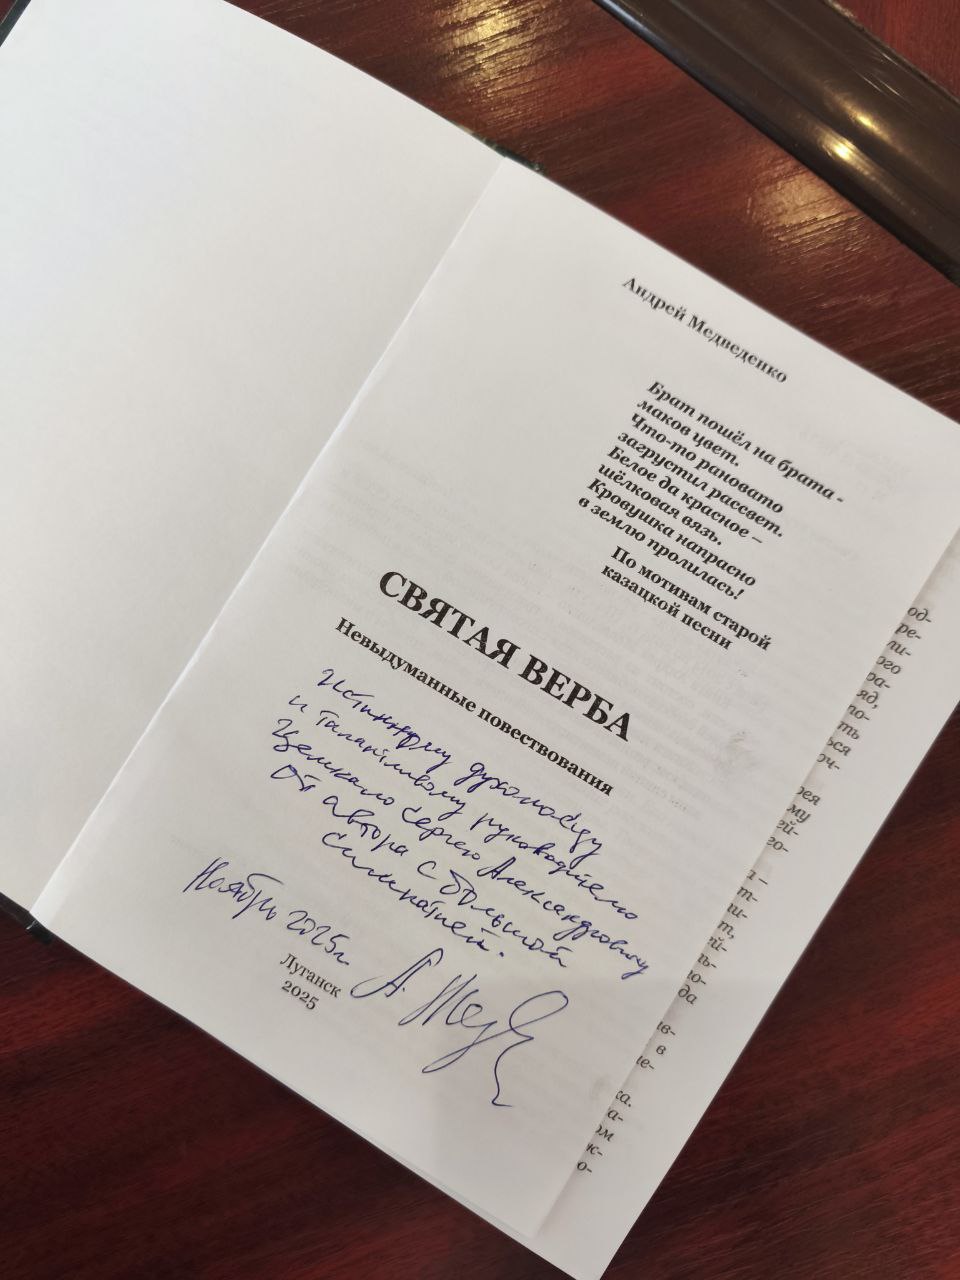 Андрей Медведенко
Брат пошёл на брата -
маков цвет.
Что-то рановато
загрустил рассвет.
Белое да красное –
шёлковая вязь.
Кровушка напрасно
в землю пролилась!
По мотивам старой
казацкой песни
СВЯТАЯ ВЕРБА
Невыдуманные повествования
Истинному
и талантливому руководителю
Сергею Александровичу
от автора с большой
симпатией.
Ноябрь 2025г.
Луганск
2025